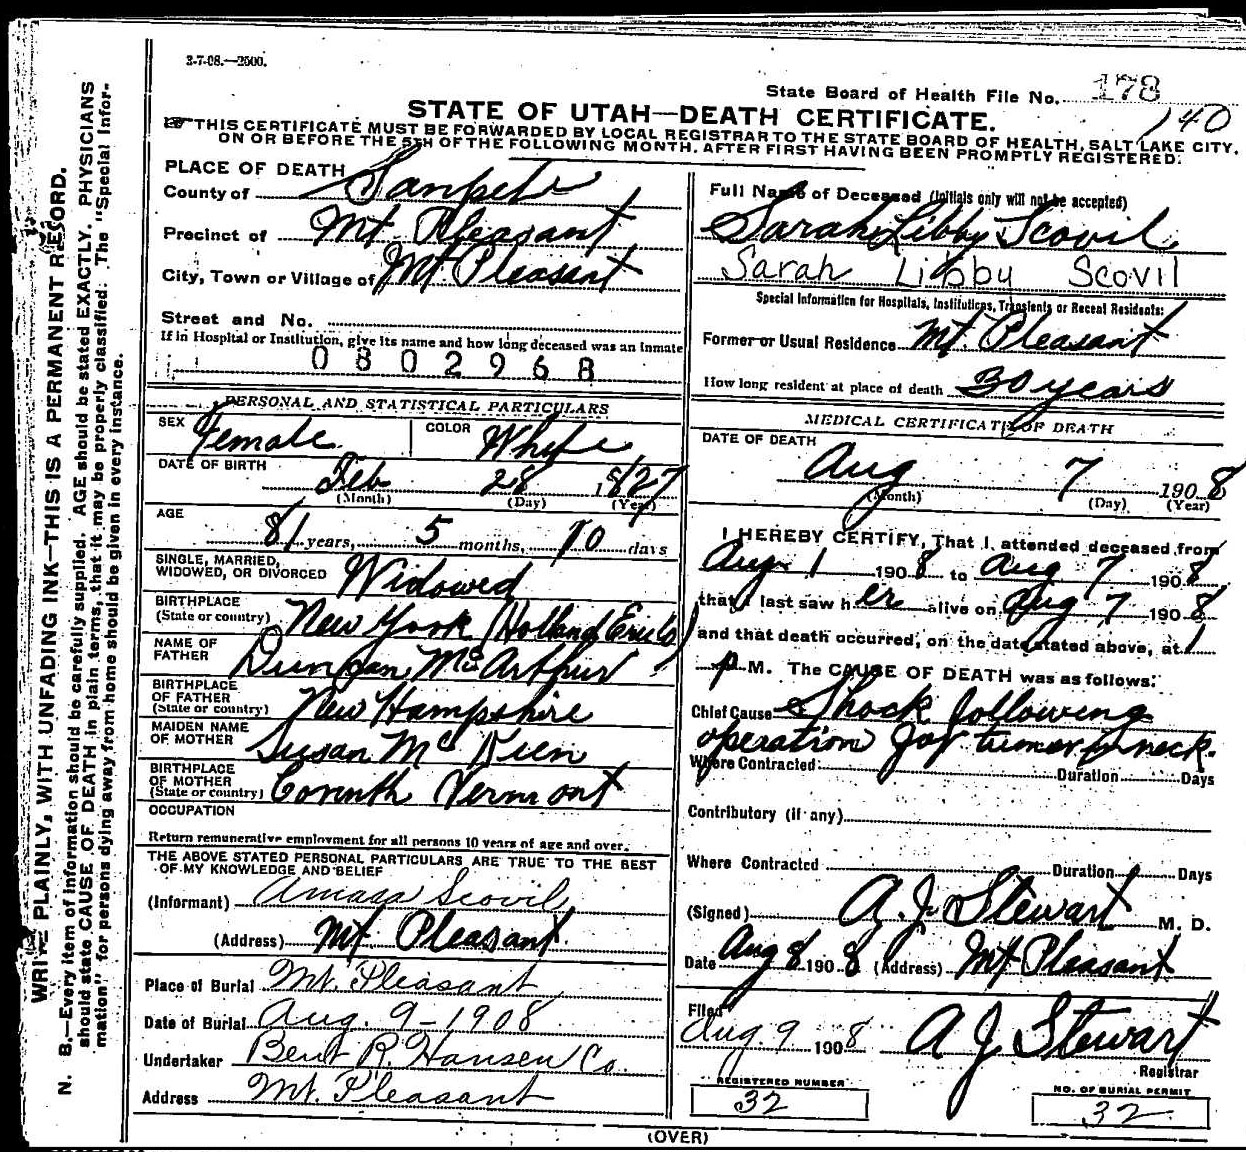 3-7-08.—2500.
State Board of Health File No. 178
140
STATE OF UTAH—DEATH CERTIFICATE.
THIS CERTIFICATE MUST BE FORWARDED BY LOCAL REGISTRAR TO THE STATE BOARD OF HEALTH, SALT LAKE CITY,
ON OR BEFORE THE 5TH OF THE FOLLOWING MONTH, AFTER FIRST HAVING BEEN PROMPTLY REGISTERED.
WRITE PLAINLY, WITH UNFADING INK—THIS IS A PERMANENT RECORD.
N. B.—Every item of information should be carefully supplied. AGE should be stated EXACTLY. PHYSICIANS
should state CAUSE OF DEATH in plain terms, that it may be properly classified. The "Special Infor-
mation" for persons dying away from home should be given in every instance.
PLACE OF DEATH
County of Sanpete
Precinct of Mt Pleasant
City, Town or Village of Mt Pleasant
Street and No.
If in Hospital or Institution, give its name and how long deceased was an Inmate
0802968
PERSONAL AND STATISTICAL PARTICULARS
SEX Female
COLOR White
DATE OF BIRTH Feb 28 1827
(Month) (Day) (Year)
AGE
81 years, 5 months, 10 days
SINGLE, MARRIED,
WIDOWED, OR DIVORCED Widowed
BIRTHPLACE
(State or country) New York (Holland Erie Co)
NAME OF
FATHER Duncan McArthur
BIRTHPLACE
OF FATHER
(State or country) New Hampshire
MAIDEN NAME
OF MOTHER Susan McKeen
BIRTHPLACE
OF MOTHER
(State or country) Corinth Vermont
OCCUPATION
Return remunerative employment for all persons 10 years of age and over.
THE ABOVE STATED PERSONAL PARTICULARS ARE TRUE TO THE BEST
OF MY KNOWLEDGE AND BELIEF
(Informant) Amasa Scovil
(Address) Mt Pleasant
Place of Burial Mt. Pleasant
Date of Burial Aug. 9-1908
Undertaker Bent R. Hansen Co.
Address Mt. Pleasant
Full Name of Deceased (Initials only will not be accepted)
Sarah Libby Scovil
Sarah Libby Scovil
Special Information for Hospitals, Institutions, Transients or Recent Residents:
Former or Usual Residence Mt. Pleasant
How long resident at place of death 30 years
MEDICAL CERTIFICATE OF DEATH
DATE OF DEATH
Aug 7 1908
(Month) (Day) (Year)
I HEREBY CERTIFY, That I attended deceased from
Aug 1 1908 to Aug 7 1908
that I last saw her alive on Aug 7 1908
and that death occurred, on the date stated above, at 1
P M. The CAUSE OF DEATH was as follows:
Chief Cause Shock following
operation for tumor in neck.
Where Contracted Duration Days
Contributory (if any)
Where Contracted Duration Days
(Signed) A. J. Stewart M. D.
Date Aug 8 1908 (Address) Mt Pleasant
Filed
Aug. 9 1908 A J Stewart
Registrar
REGISTERED NUMBER
32
NO. OF BURIAL PERMIT
32
(OVER)